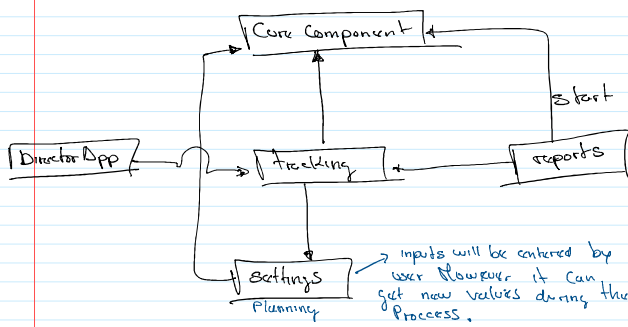 Core Component
start
DirectorApp
tracking
reports
settings
Planning
inputs will be entered by
user However it can
get new values during the
Proccess.